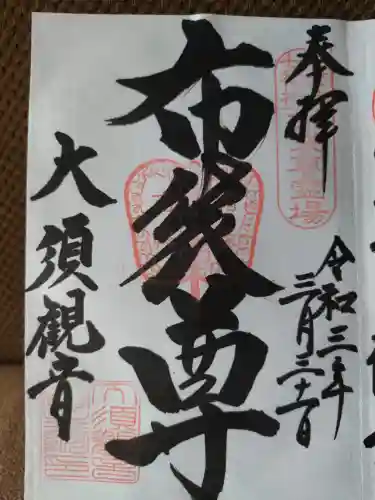 奉拝
令和三年
三月三十一日
布袋尊
大須観音